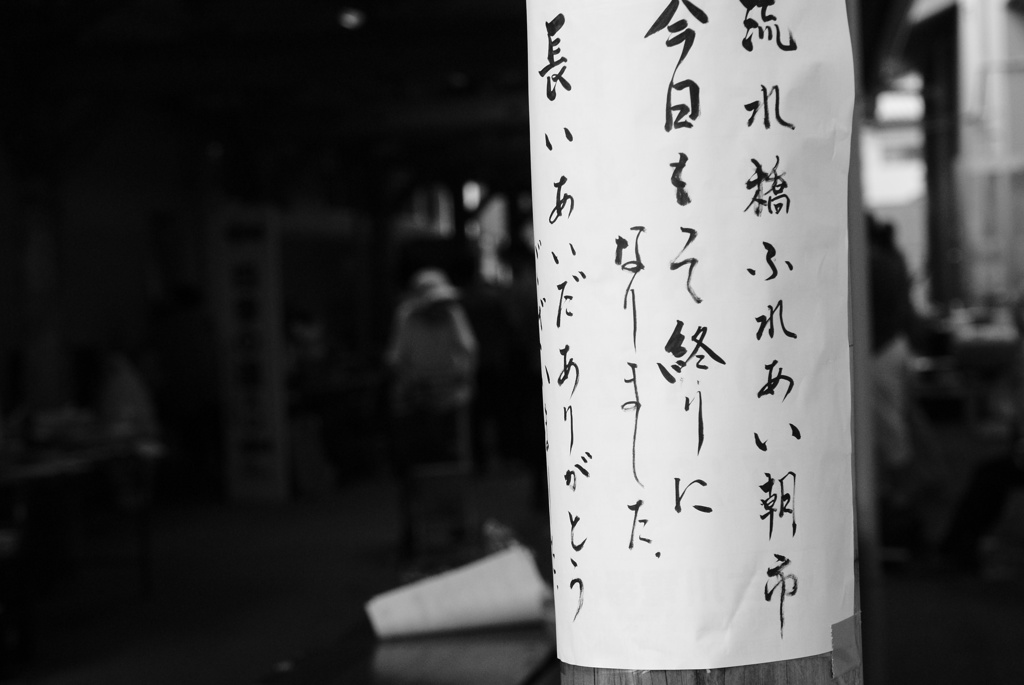 流れ橋ふれあい朝市
今日をもって終りに
なりました.
長いあいだありがとう